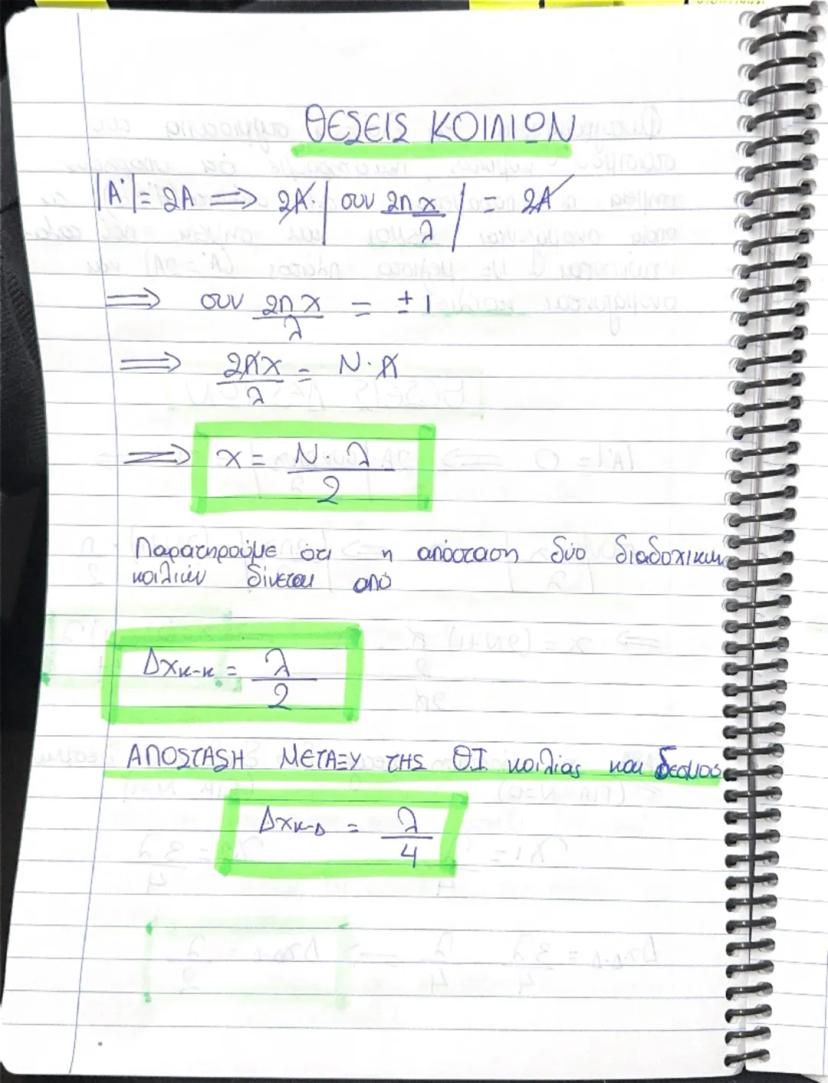 ΘΕΣΕΙΣ ΚΟΙΛΙΩΝ
|A'| = 2A ⟹ 2A · |συν 2πx/λ| = 2A
⟹ συν 2πx/λ = ±1
⟹ 2πx/λ = N·π
⟹ x = N·λ/2
Παρατηρούμε ότι η απόσταση δύο διαδοχικών
κοιλιών δίνεται από
Δxκ-κ = λ/2
ΑΠΟΣΤΑΣΗ ΜΕΤΑΞΥ ΤΗΣ Θ.Ι κοιλίας και δεσμος
Δxκ-Δ = λ/4